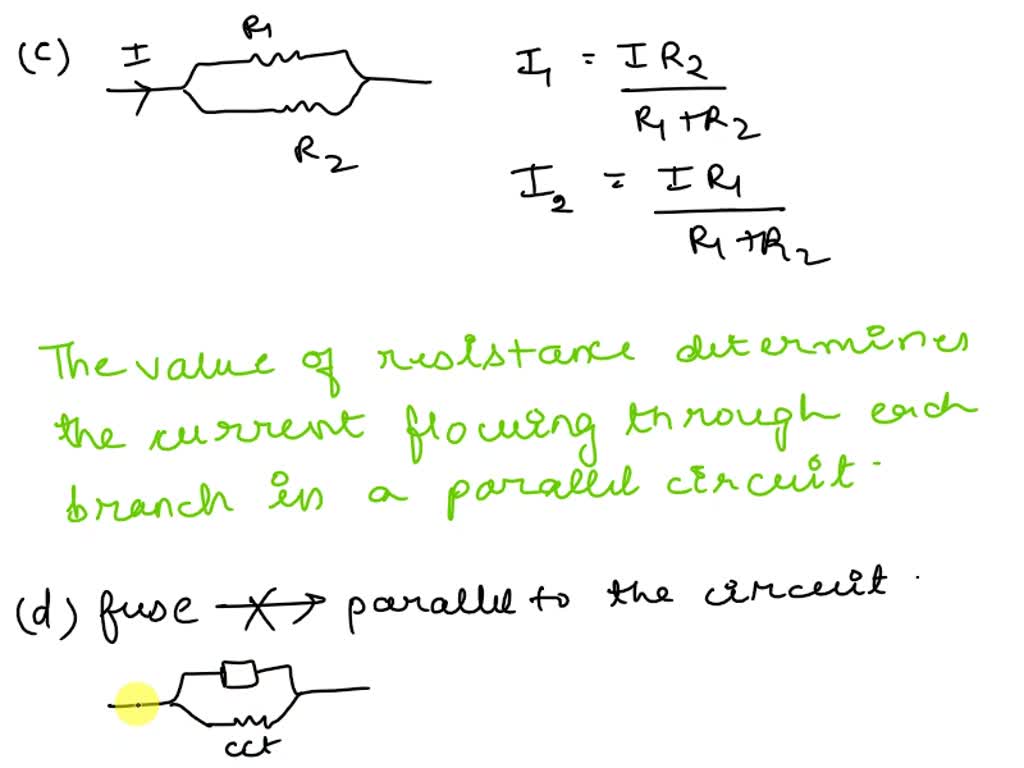 (c) I R1 I1 = I R2 / R1+R2
R2
I2 = I R1 / R1+R2
The value of resistance determines
the current flowing through each
branch in a parallel circuit.
(d) fuse parallel to the circuit.
cct